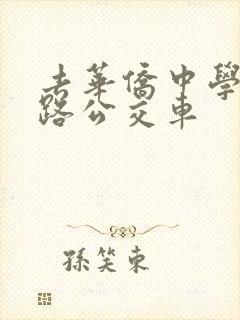 去華僑中學
路公交車
孫笑東